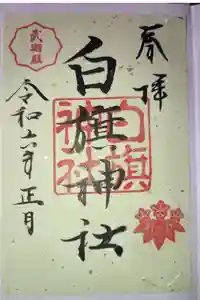 奉拝
白旗神社
白旗神社
令和六年正月